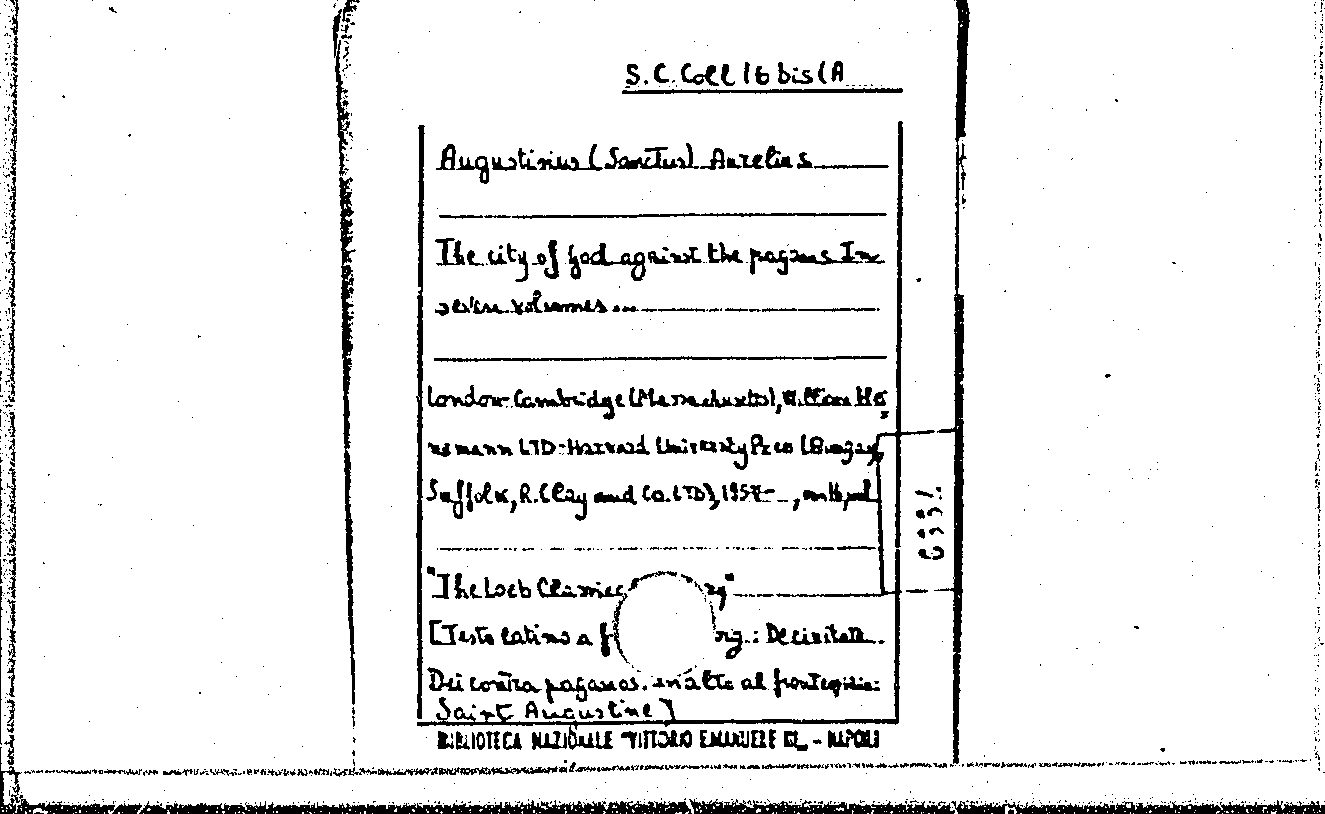 S.C. Coll 16 bis (A
Augustinus (Sanctus) Aurelius
The city of god against the pagans In
seven volumes...
London-Cambridge (Massachusetts), William He=
nemann LTD-Harvard University Press (Bungay,
Suffolk, R. Clay and Co. LTD), 1957- , vol.
"The Loeb Classic ry"
[Testo latino a f rig.: De civitate
Dei contra paganos. in alto al frontespizio:
Saint Augustine]
BIBLIOTECA NAZIONALE "VITTORIO EMANUELE III" - NAPOLI